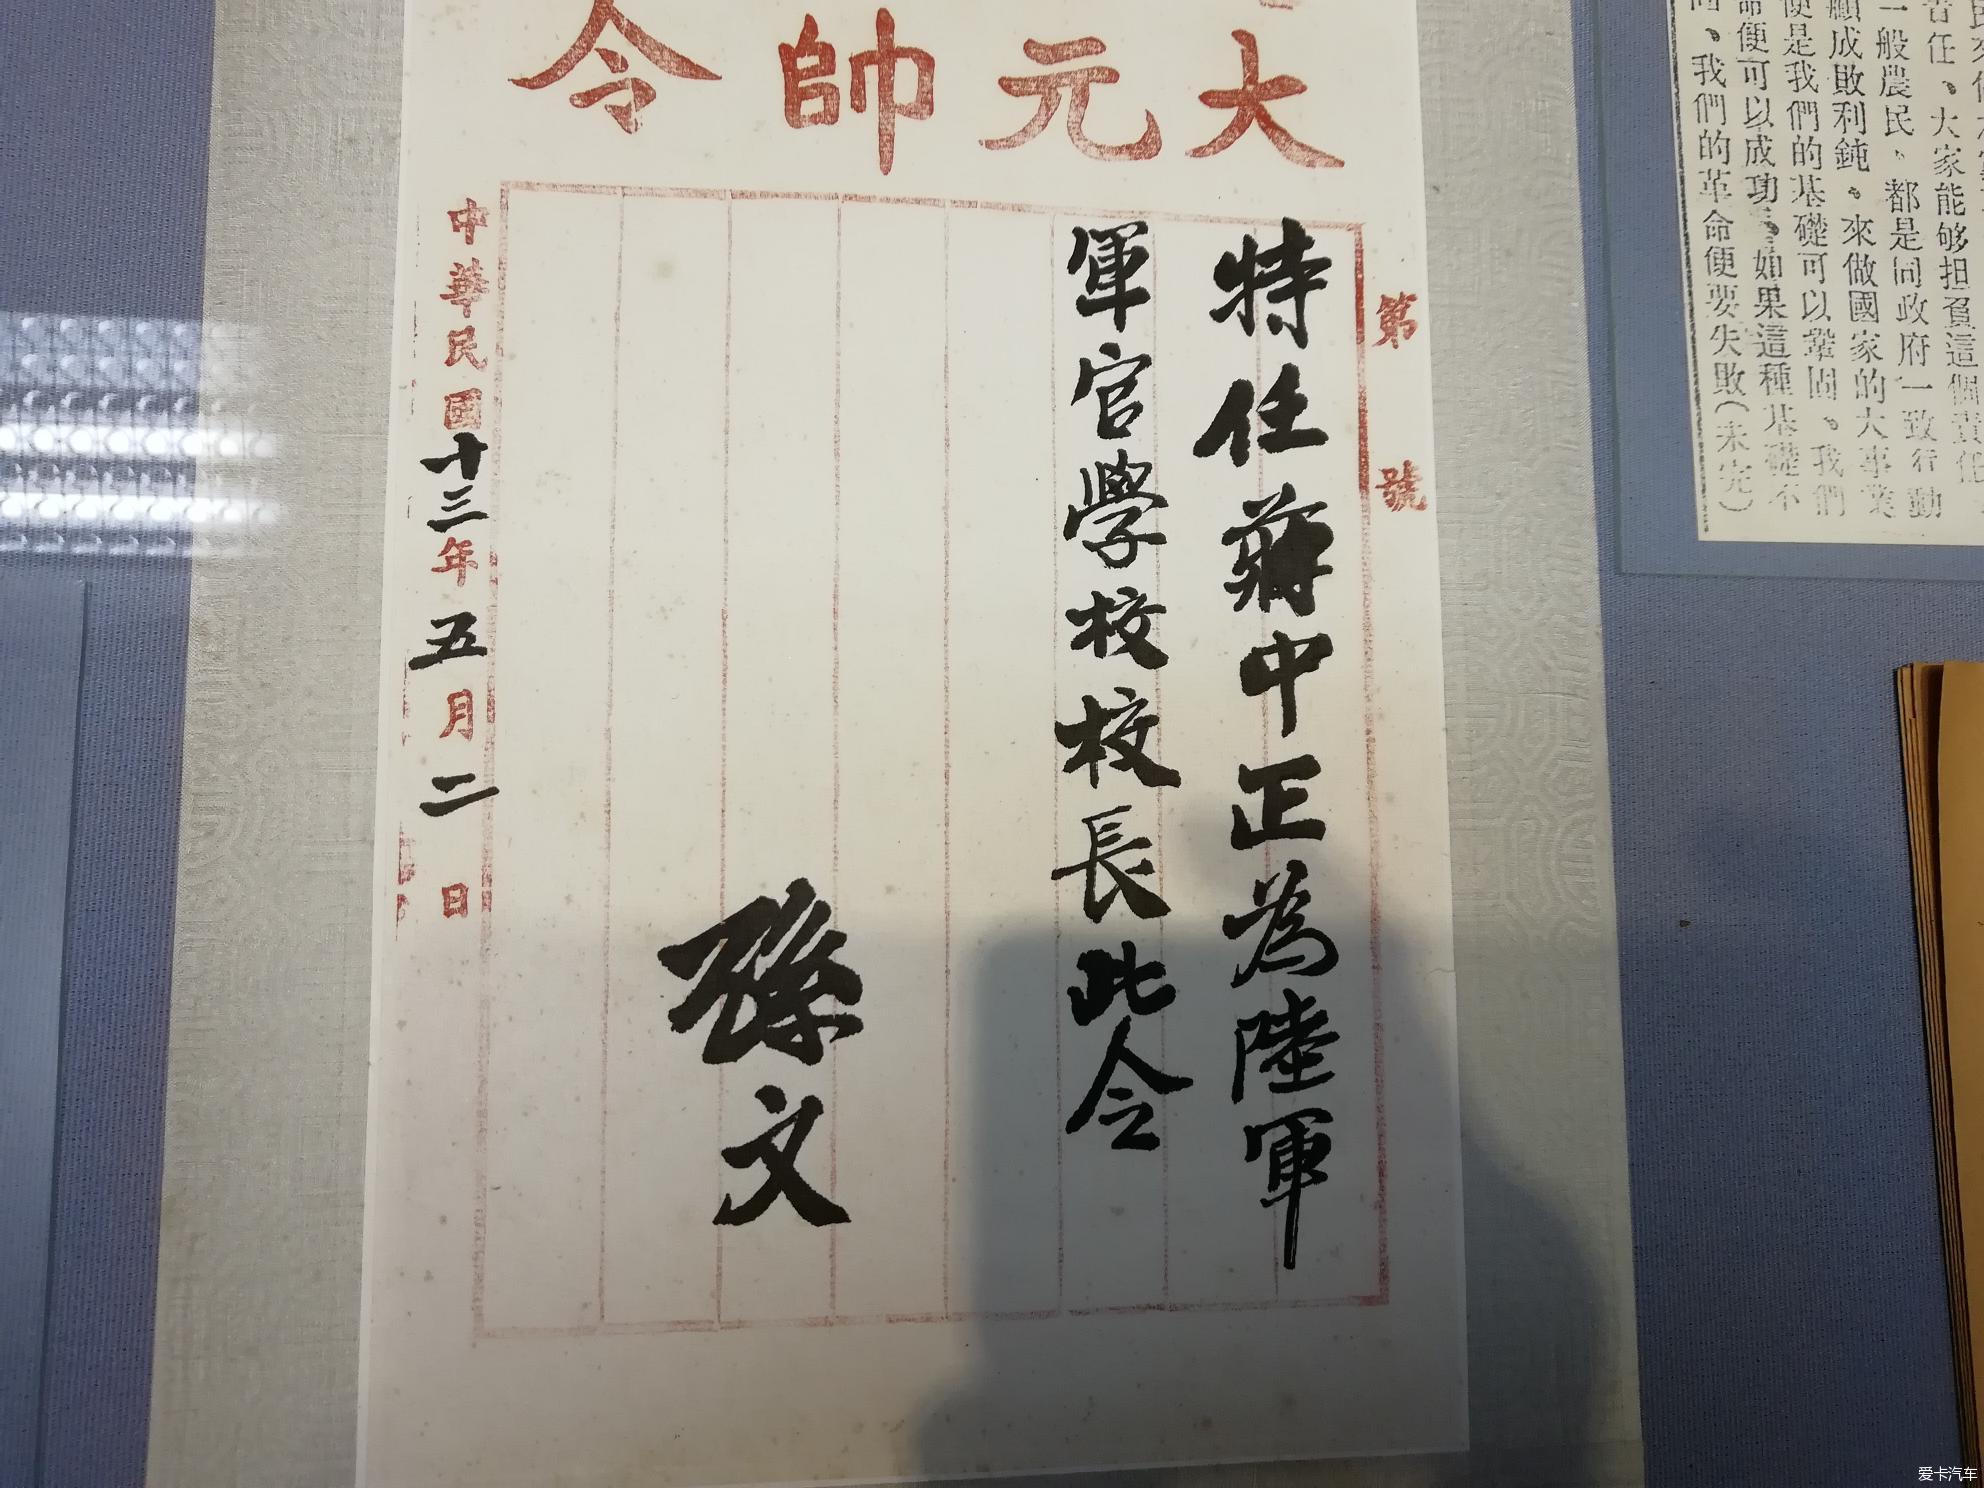 大元帥令
第 號
特任蔣中正為陸軍
軍官學校校長此令
孫文
中華民國十三年五月二日
任、大家能够担負這個責任
一般農民。都是同政府一致行動
顧成敗利鈍。來做國家的大事業
便是我們的基礎可以鞏固、我們
命便可以成功、如果這種基礎不
、我們的革命便要失敗(未完)
爱卡汽车